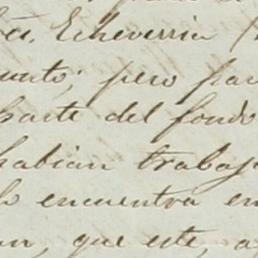 Echeverria
punto; pero par
parte del fondo
habian trabaj
lo encuentra en
an, que este, a